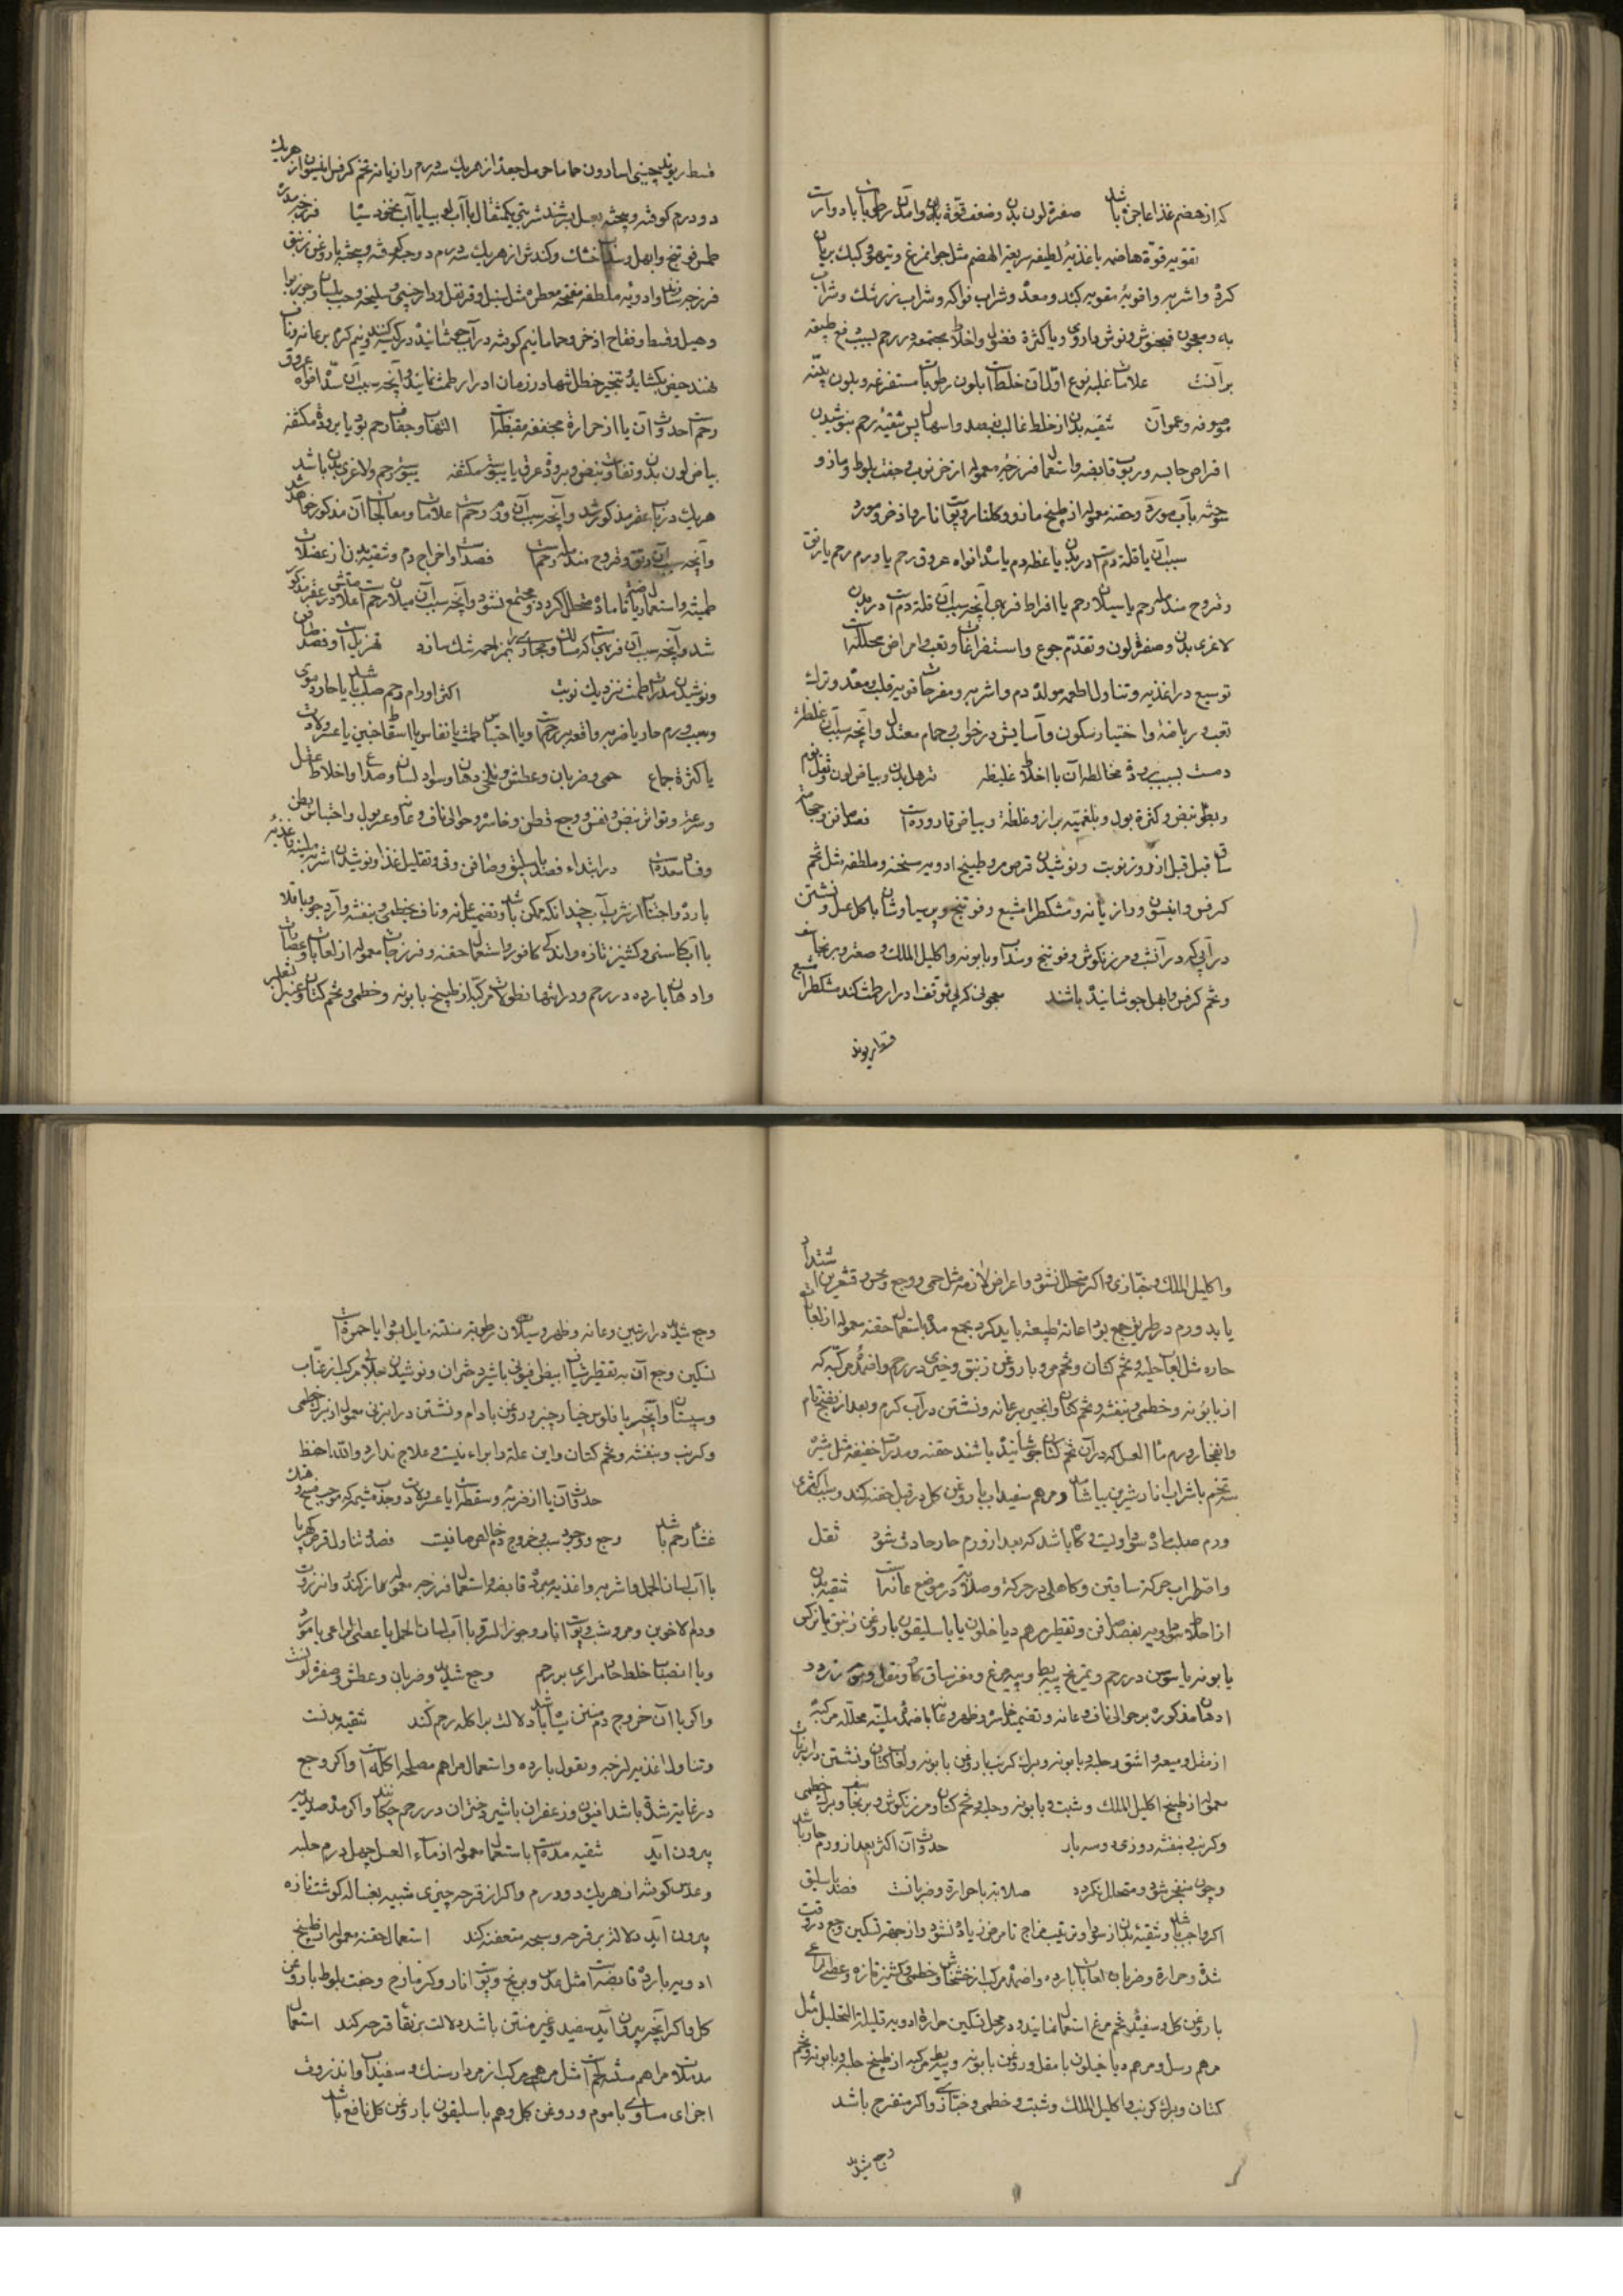 که از هضم غذا عاجز باشد صفرة لون بدن وضعف قوة بدن وآمدن رطوبات بادوارت
تقویه قوة هاضمه باغذیه لطیفه سریعة الهضم مثل جوامرغ وتیهو وکبک بریان
کرده واشربه وادویه مقویه کبد ومعده وشراب فواکه وشراب زرشک وشراب
به ومعجون فنجنوش ونوش دارو ویا کثرة فضول واخلاط مجتمعه در رحم بسبب دفع طبیعة
برآنست علامات غلبه نوع اول آن خلطست بلون رطوبات مستفرغه وبلون پنبه
وعموآن تنقیه بدن از خلط غالب بفصد واسهال پس تنقیه رحم بنوشیدن
اقراص حابسه وربوب قابضه واستعمال فرزجه معموله از خرنوب وجفت بلوط ومازو
بآب مورد وحقنه معموله از طبیخ مازو وگلنار وپوست انار واذخر ومورد
سبب آن یا قلة دمست در بدن یا غلظ دم یا سد افواه عروق رحم یا ورم رحم یا رتق
وقروح مندمله رحم یا میلان رحم یا افراط فربهی آنچه سبب آن قلة دمست در بدن
لاغری بدن وصفرة لون وتقدم جوع واستفراغات وتعب وامراض محلله است
توسیع در اغذیه وتناول اطعمه مولده دم واشربه ومفرحات قویه قلب ومعده وترک
تعب وریاضة واختیار سکون وآسایش در خواب وحمام معتدل وآنچه سبب آن غلظ
دمست بسبب برودة مخالطه آن با اخلاط غلیظه ترهل بدن وبیاض لون وثقل نوم
وبطؤ نبض وکثرة بول وبلغمیة براز وغلظة وبیاض قاروره است فصد صافن وحجامة
ساق قبل از روز نوبت ونوشیدن قرص مر وطبیخ ادویه مسخنه وملطفه مثل تخم
کرفس وانیسون ورازیانه ومشکطرامشیع وفوتنج وپرسیاوشان باگل عسل ونشستن
در آبی که در آن شب ومرزنگوش وفوتنج وسداب وبابونه واکلیل الملک وصعتر وبرنجاسف
وتخم کرفس وابهل جوشانیده باشند معجونی که بی توقف ادرار طمث کند مشکطرامشیع
قسط ریوند
قسط ریوند چینی اسارون حماما حرمل جعده از هریک سه درم رازیانه تخم کرفس انیسون از هریک
دو درم کوفته وبیخته بعسل بسرشند شربتی یکمثقال با آب لوبیا یا آب نخود سیاه فرزجه مدره
فوتنج وابهل وسداب خشک وکندش از هریک سه درم کوفته وبیخته با روغن زنبق
فرزجه سازند وادویه ملطفه مفتحه معطره مثل سنبل وقرنفل ودارچینی وسلیخه وحب بلسان وجوزبوا
وهیل وقسط وفقاح اذخر وحماما نیم کوفته در آب جوشانیده در کیسه کنند ونیم گرم بر عانه وناف
نهند حیض بکشاید تبخیر حنظل تنها در زمان ادرار طمث نمایند وآنچه سبب آن سد افواه عروق
رحمست حدوث آن یا از حرارة مجففه مقبضه است التهاب وجفاف رحم بود یا برودة مکثفه
بیاض لون بدن وتفاوت نبض وبرودة عرق یا یبوسة مکثفه یبوسة رحم ولاغری بدن باشد
هریک در باب عقر مذکور شد وآنچه سبب آن ورم رحمست علامات ومعالجات آن مذکور خواهد شد
وآنچه سبب آن رتق وقروح مندمله رحمست فصدست واخراج دم وتنقیه بدن از فضلات
طمثیه واستعمال ریاضت تا ماده متحلل گردد ومجتمع نشود وآنچه سبب آن میلان رحمست علامتش در عقر مذکور
شد وآنچه سبب آن فربهیست که مسالک ومجاری را بمزاحمه تنگ سازد تهزیلست وفصد صافن
ونوشیدن مدرات طمث نزدیک نوبت اکثر اورام رحم صلب باشد یا حار دموی
وسبب ورم حار یا ضربه واقعه بر رحمست ویا احتباس طمث یا نفاس یا اسقاط جنین یا عسر ولادت
یا کثرة جماع حمی وضربان وعطش وتلخی دهان وسواد لسان وصداع واختلاط عقل
وسرعة وتواتر نبض ونفس ووجع قطن وخاصره وحوالی ناف وعانه وعسر بول واحتباس بطن
وفساد معده است در ابتداء فصد باسلیق وصافن وقی وتقلیل غذا ونوشیدن اشربه ملینه واغذیه
بارده واجتناب از شرب آب چندانکه ممکن باشد وتضمید عانه وناف بخطمی وبنفشه وآرد جو وباقلا
با آب کاسنی وکشنیز تازه واندکی کافور واستعمال حقنه وفرزجات معموله از لعابات وعصارات
وادهان بارده در رحم ودر انتها نطولات مرکبه از طبیخ بابونه وخطمی وتخم کتان وعنب الثعلب
واکلیل الملک وخبازی واگر متحلل نشود واعراض لازمه مثل حمی ووجع ونخس وقشعریره اشتداد
یابد ورم در طریق جمع بود اعانة طبیعة باید کرد بجمع مده باستعمال حقنه معموله از لعابات
حاره مثل لعاب حلبه وتخم کتان وتخم مرو با روغن زنبق وخیری در رحم واضمده مرکبه که
از بابونه وخطمی وبنفشه وتخم کتان وانجیر بر عانه ونشستن در آب گرم وبعد از نضج تام
وانفجار ورم ماء العسل که در آن تخم کتان جوشانیده باشند حقنه ومدرات خفیفه مثل شیره
سه تخم با شراب انار شیرین بیاشامند ومرهم سفیداب با روغن گل در قبل حقنه کنند وسبب اکثری
ورم صلب ماده سوداویست وگاه باشد که بعد از ورم حار حادث شود ثقل
واضطراب حرکة ساقین وکاهلی در حرکة وصلابة در موضع عانه است تنقیه بدن
از اخلاط سوداویه بفصد صافن وتقطیر مرهم دیاخلیون یا باسلیقون با روغن زنبق یا نرگس
یا بابونه یا سوسن در رحم وتمریخ پیه بط وپیه مرغ ومغز ساق گاو ومقل وموم زرد و
ادهان مذکوره بر حوالی ناف وعانه وتضمید خاصره وظهر وعانه باضمده ملینه محلله مرکبه
از مقل ومیعه واشق وحلبه وبابونه وبرگ کرنب با روغن بابونه ولعاب کتان ونشستن در آبزنات
معموله از طبیخ اکلیل الملک وشبت وبابونه وحلبه وتخم کتان ومرزنگوش وبرنجاسف وبرگ خطمی
وکرنب وبنفشه روزی دوسه بار حدوث آن اکثر بعد از ورم حار باشد
وچون منفجر شود ومتحلل نگردد صلابة با حرارة وضربانست فصد باسلیق
اگر واجب باشد وتنقیه بدن از سودا وترتیب مزاج تا مرض زیاده نشود واز جهة تسکین وجع در وقت
شدة وحرارة وضربان لعابات بارده واضمده مرکبه از خشخاش وخطمی وکشنیز تازه وعصی الراعی
با روغن گل وسفیده تخم مرغ استعمال نمایند ودر محل تسکین حرارة ادویه قلیلة التحلیل مثل
مرهم رسل ومرهم دیاخیلون با مقل وروغن بابونه وپیه بط مرکبه از طبیخ حلبه وبابونه وتخم
کتان وبرگ کرنب واکلیل الملک وشبت وخطمی وخبازی واگر متقرح باشد
وجع شدید
وجع شدید در اربیتین وعانه وظهر وسیلان رطوبة منتنه مایل بسواد یا حمرة است
تسکین وجع آن به تقطیر شیاف ابیض افیونی باشیر دختران ونوشیدن جلاب مرکب از عناب
وسپستان وانجیر با فلوس خیار چنبر وروغن بادام ونشستن در آبزن معموله از برگ خطمی
وکرنب وبنفشه وتخم کتان واین علة را براء نیست وعلاج ندارد والله احفظ
حدوث آن یا از ضربه وسقطه است یا عسر ولادت وجذب مشیمه که موجب فسخ وهتک
غشاء رحم باشد وجع ووجود سبب وخروج دم خالص صافیست فصد وتناول قرص کهربا
با آب لسان الحمل واشربه واغذیه مبرده قابضه واستعمال فرزجه معموله از گزمازک وانزروت
ودم الاخوین ومر وشب وپوست انار وجوز السرو با آب لسان الحمل یا عصی الراعی یا مورد
ویا انصباب خلط حاد مراری بر رحم وجع شدید وضربان وعطش وصفرة لونست
واگر با آن خروج دم منتن سیاه باشد دلالت بر اکله رحم کند تنقیه بدنست
وتناول اغذیه لزجه وبقول بارده واستعمال مراهم مصلحه اکله است واگر وجع
در غایة شدة باشد افیون وزعفران باشیر دختران در رحم چکانند واگر مده صدیدیه
بیرون آید تنقیه مده است باستعمال معموله از ماء العسل چهل درم حلبه
وعدس کوفته از هریک دو درم واگر از قرحه چیزی شبیه بغساله گوشت تازه
بیرون آید دلالة بر قرحه وسحجه متعفنه کند استعمال حقنه معموله از طبیخ
ادویه بارده قابضه است مثل عدس وبرنج وپوست انار وگزمازج وجفت بلوط با روغن
گل واگر آنچه بیرون آید سفید وغیر منتن باشد دلالت بر نقاء قرحه کند استعمال
مدملات ومراهم منبته لحمست مثل مرهم مرکب از مردارسنگ وسفیداب وانزروت
اجزای مساوی با موم وروغن گل ومرهم باسلیقون با روغن گل نافع باشد